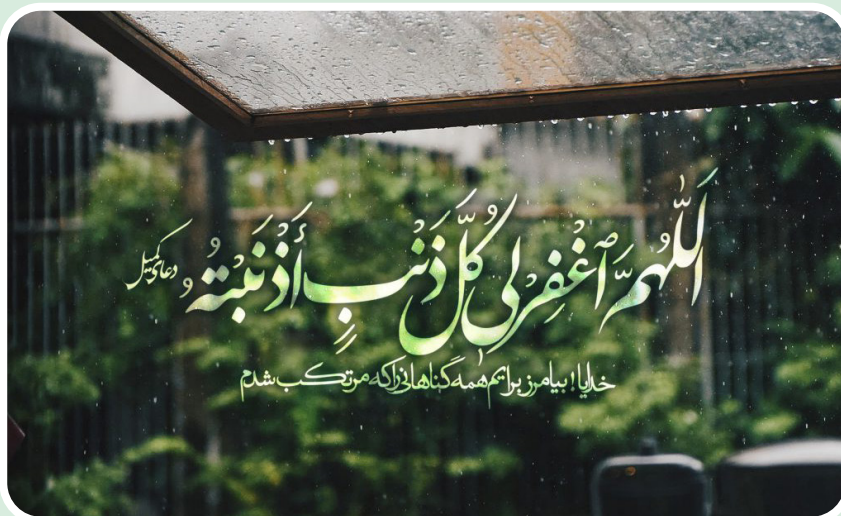 اَللّٰهُمَّ ٱغْفِرْلِی كُلَّ ذَنْبٍ أَذْنَبْتُهُ
دعای کمیل
خدایا! بیامرز برایم همه گناهانی را که مرتکب شدم